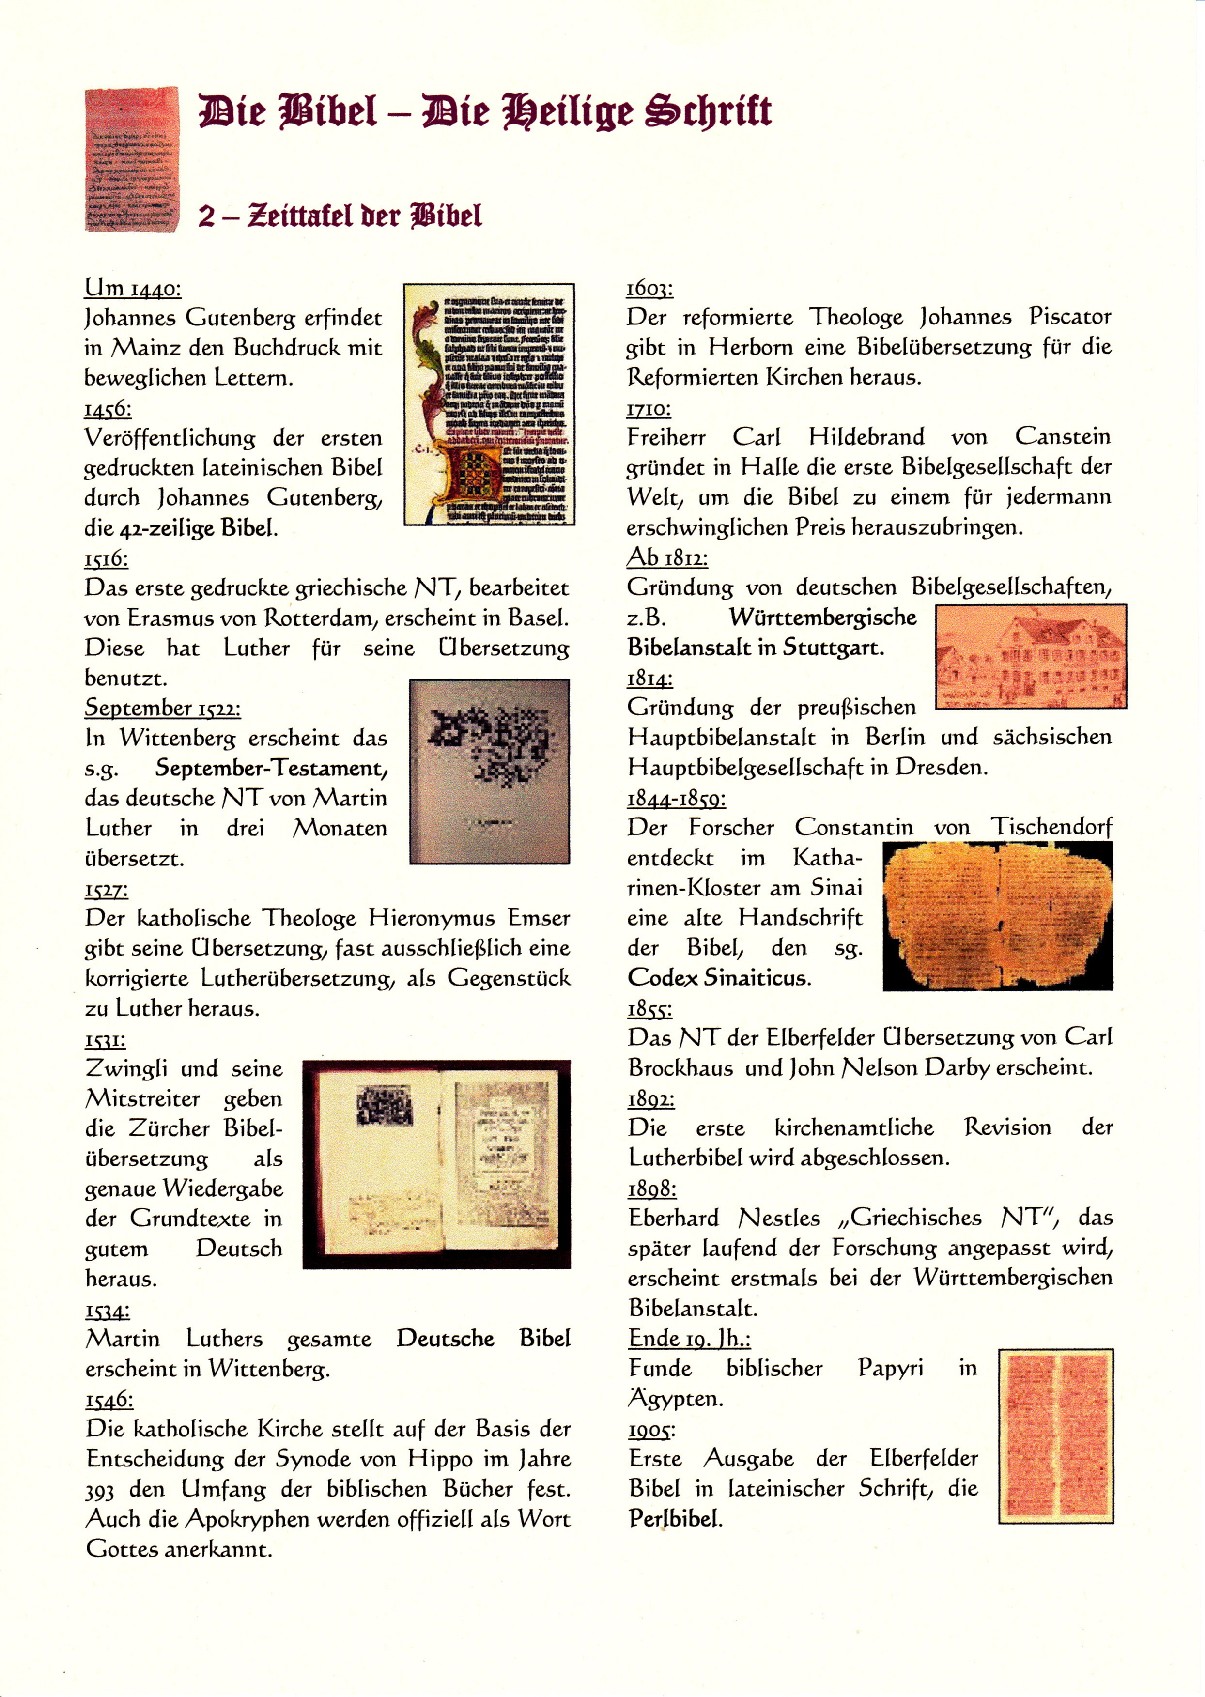 Die Bibel – Die Heilige Schrift
2 – Zeittafel der Bibel
Um 1440:
Johannes Gutenberg erfindet
in Mainz den Buchdruck mit
beweglichen Lettern.
1456:
Veröffentlichung der ersten
gedruckten lateinischen Bibel
durch Johannes Gutenberg,
die 42-zeilige Bibel.
1516:
Das erste gedruckte griechische NT, bearbeitet
von Erasmus von Rotterdam, erscheint in Basel.
Diese hat Luther für seine Übersetzung
benutzt.
September 1522:
In Wittenberg erscheint das
s.g. September-Testament,
das deutsche NT von Martin
Luther in drei Monaten
übersetzt.
1527:
Der katholische Theologe Hieronymus Emser
gibt seine Übersetzung, fast ausschließlich eine
korrigierte Lutherübersetzung, als Gegenstück
zu Luther heraus.
1531:
Zwingli und seine
Mitstreiter geben
die Zürcher Bibel-
übersetzung als
genaue Wiedergabe
der Grundtexte in
gutem Deutsch
heraus.
1534:
Martin Luthers gesamte Deutsche Bibel
erscheint in Wittenberg.
1546:
Die katholische Kirche stellt auf der Basis der
Entscheidung der Synode von Hippo im Jahre
393 den Umfang der biblischen Bücher fest.
Auch die Apokryphen werden offiziell als Wort
Gottes anerkannt.
1603:
Der reformierte Theologe Johannes Piscator
gibt in Herborn eine Bibelübersetzung für die
Reformierten Kirchen heraus.
1710:
Freiherr Carl Hildebrand von Canstein
gründet in Halle die erste Bibelgesellschaft der
Welt, um die Bibel zu einem für jedermann
erschwinglichen Preis herauszubringen.
Ab 1812:
Gründung von deutschen Bibelgesellschaften,
z.B. Württembergische
Bibelanstalt in Stuttgart.
1814:
Gründung der preußischen
Hauptbibelanstalt in Berlin und sächsischen
Hauptbibelgesellschaft in Dresden.
1844-1859:
Der Forscher Constantin von Tischendorf
entdeckt im Katha-
rinen-Kloster am Sinai
eine alte Handschrift
der Bibel, den sg.
Codex Sinaiticus.
1855:
Das NT der Elberfelder Übersetzung von Carl
Brockhaus und John Nelson Darby erscheint.
1892:
Die erste kirchenamtliche Revision der
Lutherbibel wird abgeschlossen.
1898:
Eberhard Nestles „Griechisches NT“, das
später laufend der Forschung angepasst wird,
erscheint erstmals bei der Württembergischen
Bibelanstalt.
Ende 19. Jh.:
Funde biblischer Papyri in
Ägypten.
1905:
Erste Ausgabe der Elberfelder
Bibel in lateinischer Schrift, die
Perlbibel.